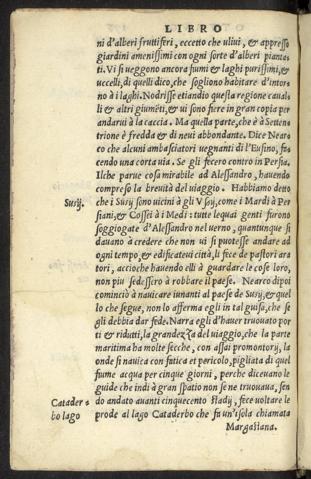 LIBRO
ni d'alberi fruttiferi, eccetto che uliui, & appresso
giardini amenissimi con ogni sorte d'alberi pianta-
ti. Vi si ueggono ancora fiumi & laghi purissimi, et
uccelli, di quelli dico, che sogliono habitare d'intor-
no à i laghi. Nodrisse etiandio questa regione caual-
li & altri giumẽti, et ui sono fiere in gran copia per
andarui à la caccia. Ma quella parte, che è à Setten-
trione è fredda & di neui abbondante. Dice Near-
co che alcuni ambasciatori uegnanti di l'Eusino, fa-
cendo una corta uia. Se gli fecero contro in Persia.
Ilche parue cosa mirabile ad Alessandro, hauendo
compreso la breuità del uiaggio. Habbiamo detto
Surij.
che i Surij sono uicini à gli Vsij, come i Mardi à Per
siani, & Cossei à i Medi: tutte lequai genti furono
soggiogate d'Alessandro nel uerno, quantunque si
dauano à credere che non ui si puotesse andare ad
ogni tempo, & edificateui città, li fece de pastori ara
tori, accioche hauendo elli à guardare le cose loro,
non piu sedessero à robbare il paese. Nearco dipoi
cominciò à nauicare iunanti al paese de Surij, & quel
lo che segue, non lo afferma egli in tal guisa, che se
gli debbia dar fede. Narra egli d'hauer truouato por
ti & ridutti, la grandezza del uiaggio, che la parte
maritima ha molte secche, con assai promontorij, la
onde si nauica con fatica et pericolo, pigliata di quel
fiume acqua per cinque giorni, perche diceuano le
guide che indi à gran spatio non se ne truouaua, sen
Catader-
bo lago
do andato auanti cinquecento stadij, fece uoltare le
prode al lago Cataderbo che fu un'isola chiamata
Margastana.